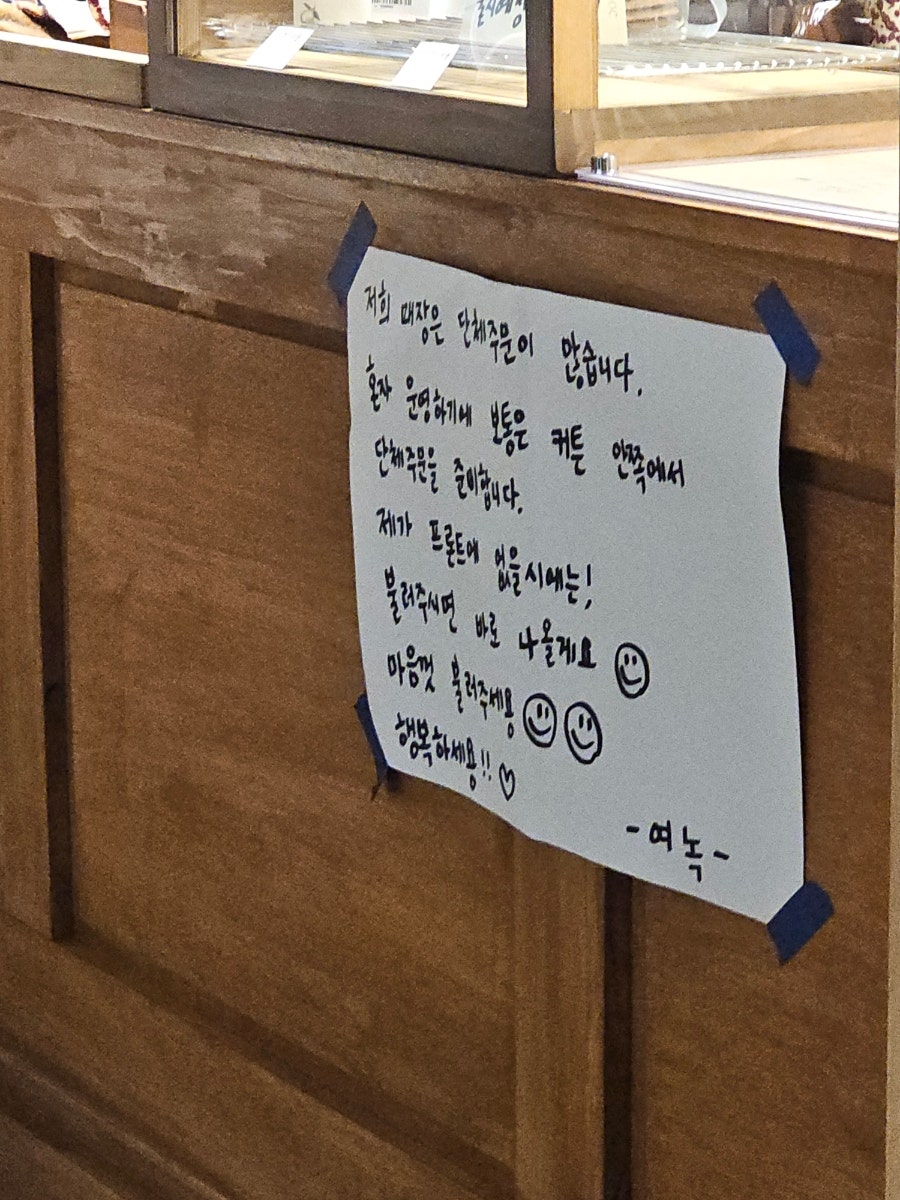 저희 매장은 단체주문이 많습니다.
혼자 운영하기에 보통은 커튼 안쪽에서
단체주문을 준비합니다.
제가 프론트에 없을시에는!
불러주시면 바로 나올게요
마음껏 불러주세용
행복하세용!! ♡
- 여녹 -